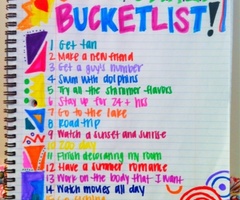 BUCKETLIST!!
1 Get tan
2 Make a new friend
3 Get a guy's number
4 Swim with dolphins
5 Try all the flavors
6 Stay up for 24+ hrs
7 Go to the lake
8 Road trip
9 Watch a sunset and sunrise
10 Zoo day
11 Finish decorating my room
12 Have a summer romance
13 Work on the body that I want
14 Watch movies all day